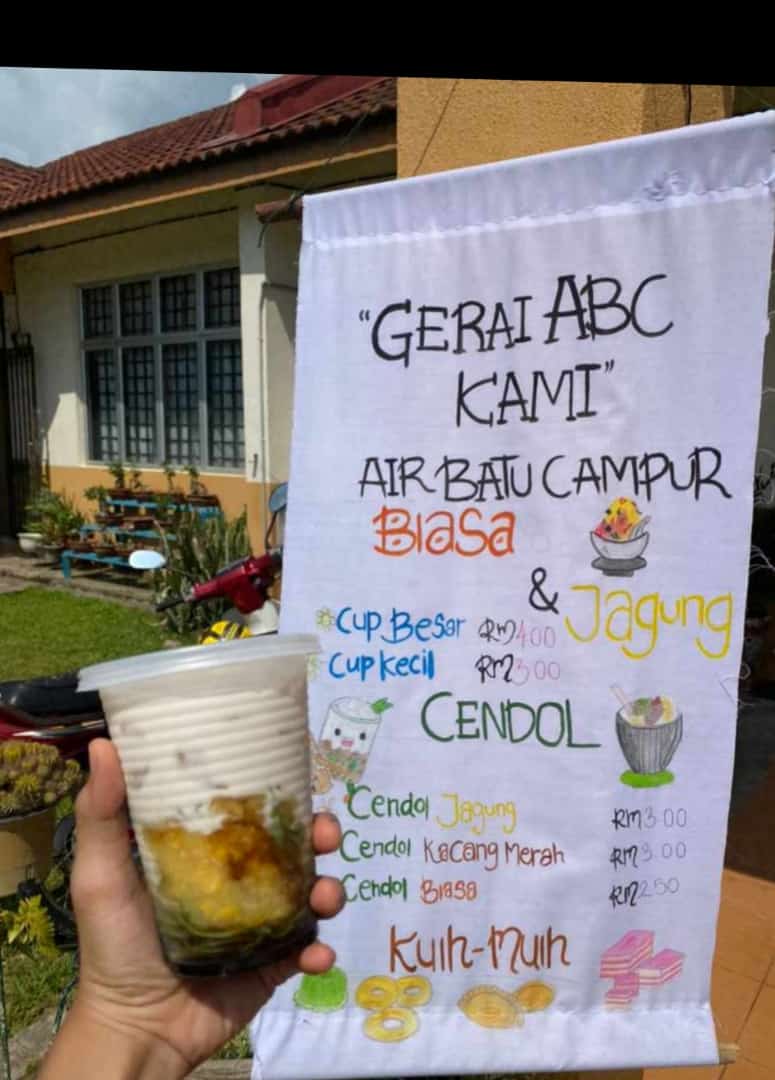 "GERAI ABC
KAMI"
AIR BATU CAMPUR
BIASA
& Jagung
Cup Besar RM400
Cup kecil RM300
CENDOL
Cendol Jagung RM3.00
Cendol Kacang Merah RM3.00
Cendol Biasa RM250
Kuih-Muih